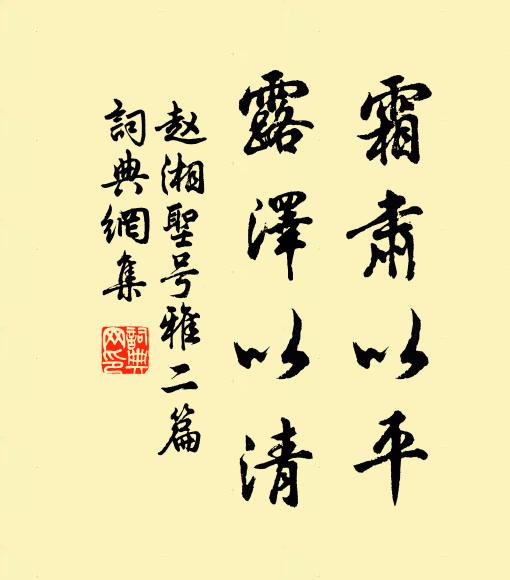 霜肅以平
露澤以清
赵湘聖号雅二篇
詞典網集
詞典網印